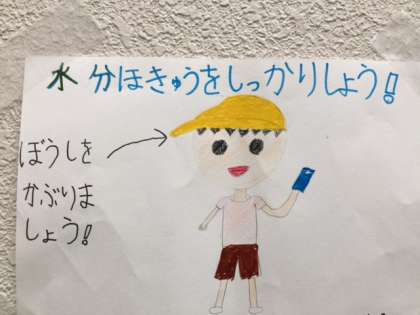 水分ほきゅうをしっかりしょう!
ぼうしを
かぶりま
しょう!